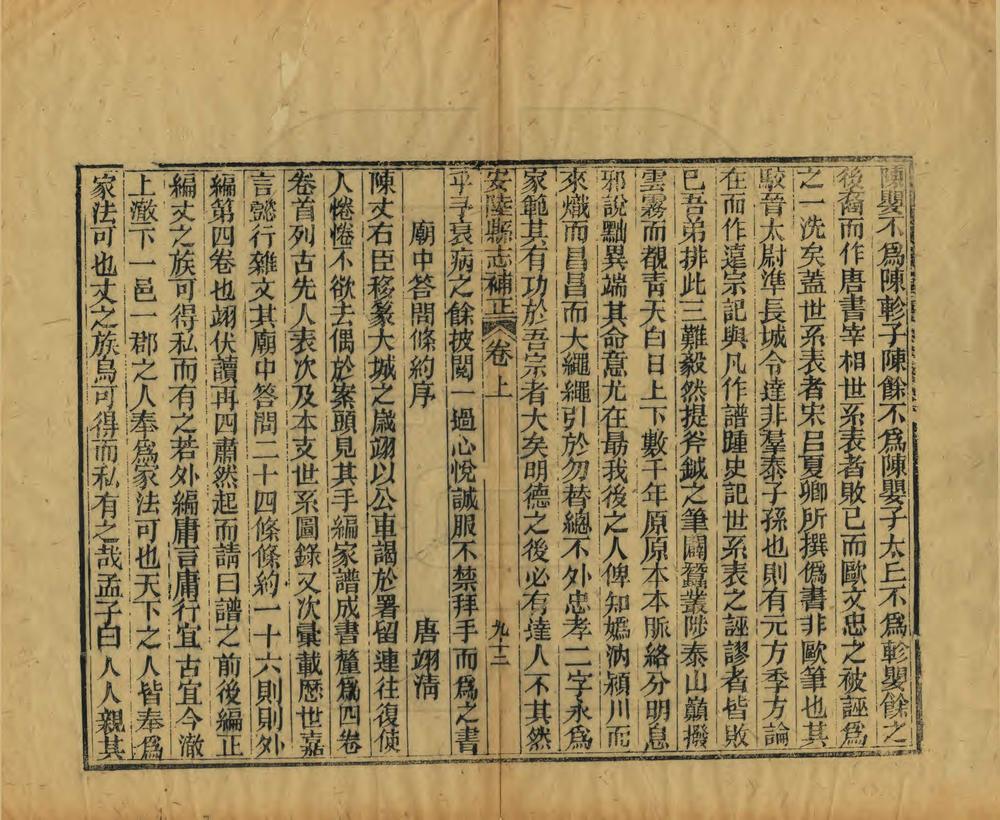 陳嬰不爲陳軫子陳餘不爲陳嬰子太丘不爲軫嬰餘之
後裔而作唐書宰相世系表者敗已而歐文忠之被誣爲
之一洗矣蓋世系表者宋呂夏卿所撰僞書非歐筆也其
駮晉太尉準長城令達非羣泰子孫也則有元方季方論
在而作遠宗記與凡作譜踵史記世系表之誣謬者皆敗
已吾弟排此三難毅然提斧鉞之筆闢蠶叢陟泰山巔撥
雲霧而覩靑天白日上下數千年原原本本脈絡分明息
邪說黜異端其命意尤在勗我後之人俾知嬀汭潁川而
來熾而昌昌而大繩繩引於勿替總不外忠孝二字永爲
家範其有功於吾宗者大矣明德之後必有達人不其然
乎予衰病之餘披閱一過心悅誠服不禁拜手而爲之書
安陸縣志補正 卷上 九十二
廟中答問條約序 唐翊淸
陳丈右臣移篆大城之歲翊以公車謁於署留連往復使
人惓惓不欲去偶於案頭見其手編家譜成書釐爲四卷
卷首列古先人表次及本支世系圖錄又次彙載歷世嘉
言懿行雜文其廟中答問二十四條條約一十六則則外
編第四卷也翊伏讀再四肅然起而請曰譜之前後編正
編丈之族可得私而有之若外編庸言庸行宜古宜今澈
上澈下一邑一郡之人奉爲家法可也天下之人皆奉爲
家法可也丈之族烏可得而私有之哉孟子曰人人親其